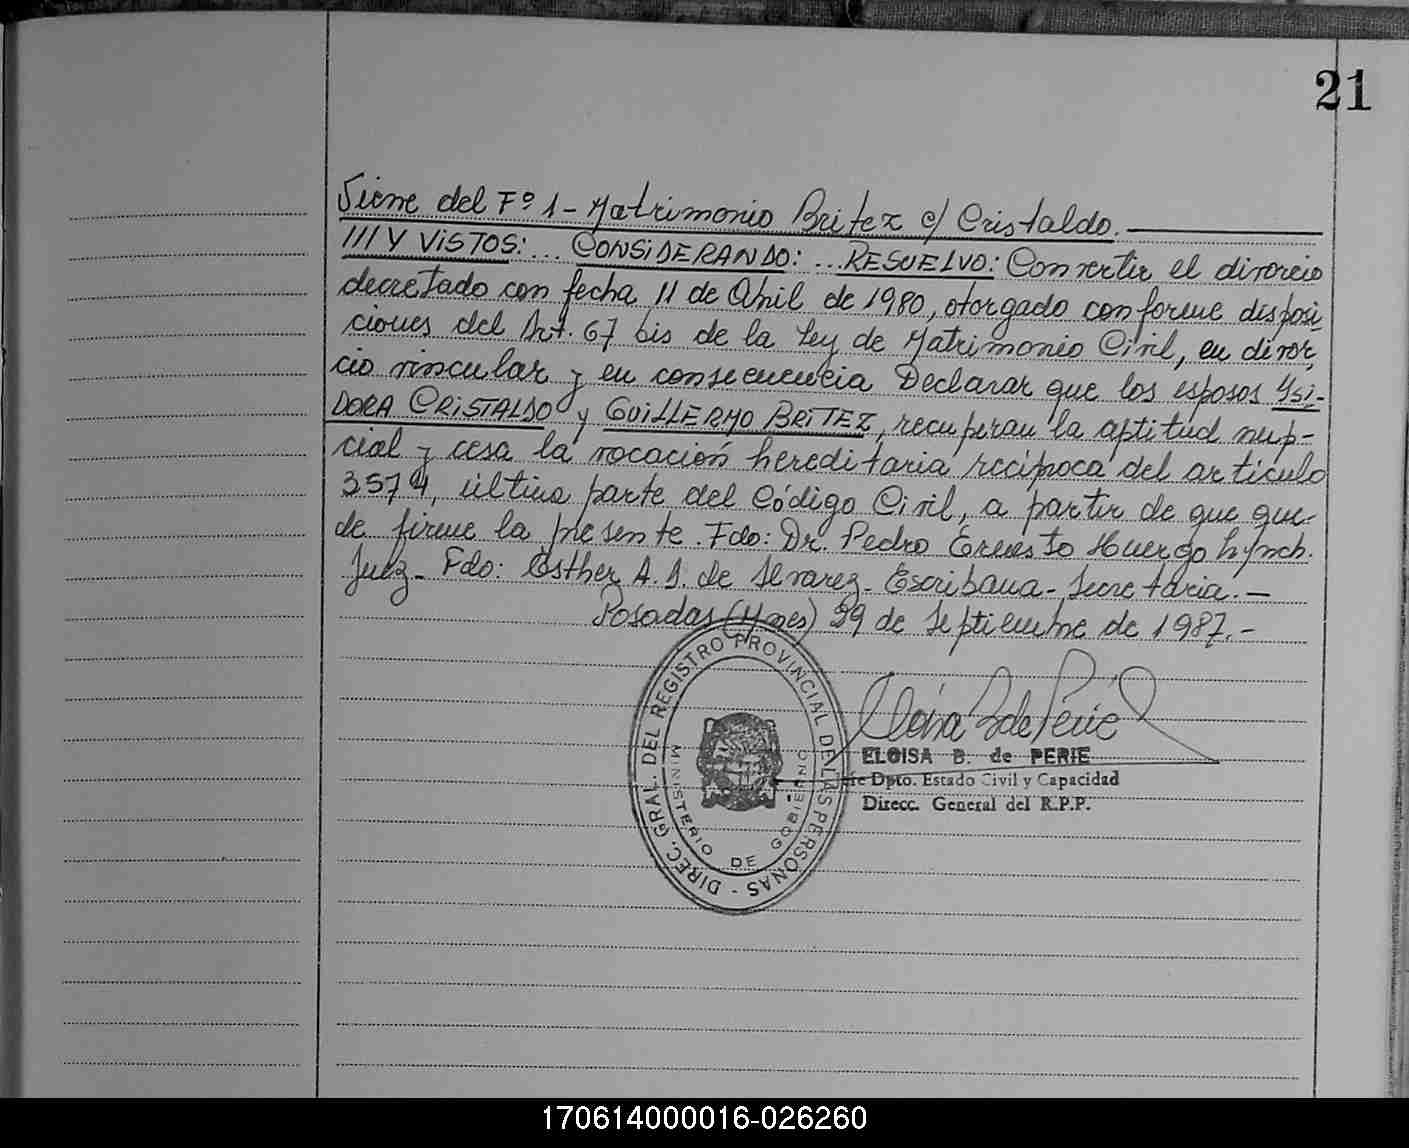 21
Viene del Fº 1 - Matrimonio Britez c/ Cristaldo.
/// Y VISTOS: ... CONSIDERANDO: ... RESUELVO: Convertir el divorcio
decretado con fecha 11 de Abril de 1980, otorgado conforme disposi-
ciones del Art. 67 bis de la Ley de Matrimonio Civil, en divor,
cio vincular y en consecuencia Declarar que los esposos YSI-
DORA CRISTALDO y GUILLERMO BRITEZ, recuperan la aptitud nup-
cial y cesa la vocación hereditaria recíproca del artículo
3574, última parte del Código Civil, a partir de que que-
de firme la presente. Fdo: Dr. Pedro Ernesto Huergo Lynch.
Juez - Fdo: Esther A. S. de Alvarez - Escribana - Secretaria. -
Posadas (Mnes) 29 de Septiembre de 1987. -
DIREC. GRAL. DEL REGISTRO PROVINCIAL DE LAS PERSONAS -
MINISTERIO DE GOBIERNO
ELOISA B. de PERIE
fe Dpto. Estado Civil y Capacidad
Direcc. General del R.P.P.
170614000016-026260